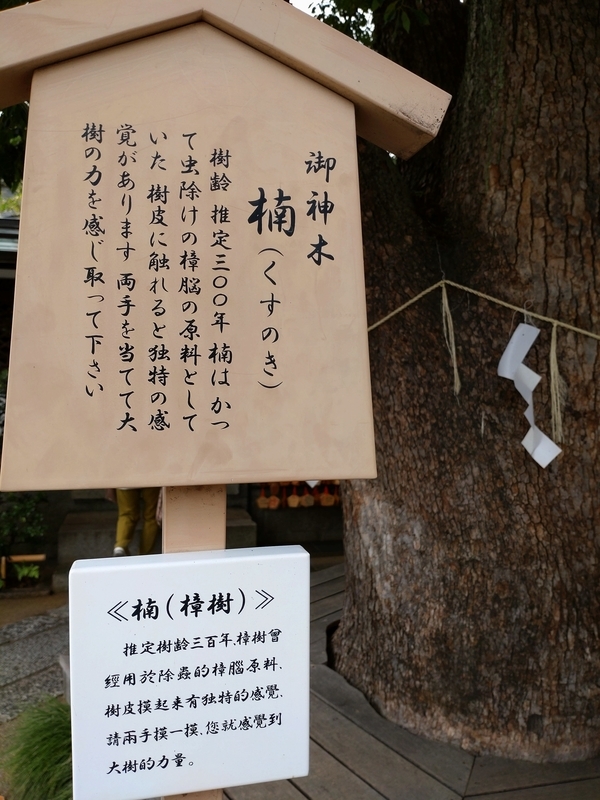 御神木
楠(くすのき)
樹齢 推定三〇〇年 楠はかっ
て虫除けの樟脳の原料として
いた 樹皮に触れると独特の感
覚があります 両手を当てて大
樹の力を感じ取って下さい
≪楠(樟樹)≫
推定樹齡三百年.樟樹曾
經用於除蟲的樟腦原料.
樹皮摸起来有独特的感覺.
請兩手摸一摸.您就感覺到
大樹的力量。